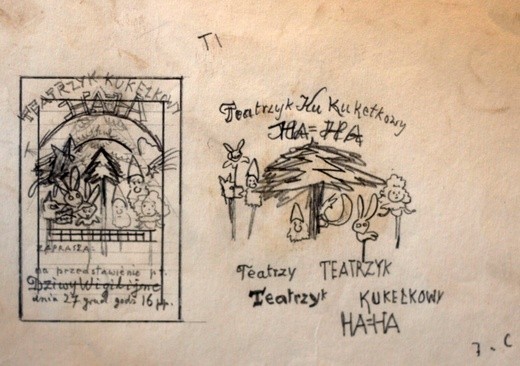 TI
TEATRZYK KUKEŁKOWY
HA=HA
ZAPRASZA:
na przedstawienie pt.
Dziwy Wigilijne
dnia 27 grud godz 16 pp.
Teatrzyk Ku Kukełkowy
HA=HA
Teatrzy TEATRZYK
Teatrzyk KUKEŁKOWY
HA=HA